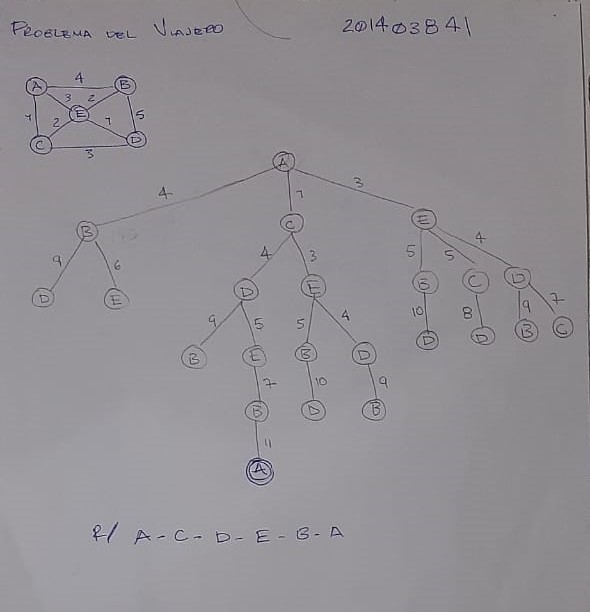 PROBLEMA DEL VIAJERO 201403841
4
A B
3 2
1 E 5
2 1
C D
3
A
4 1 3
B C E
9 6 4 3 5 5 4
D E D E B C D
9 5 5 4 10 8 9 7
B E B D D D B C
7 10 9
B D B
11
A
R/ A - C - D - E - B - A